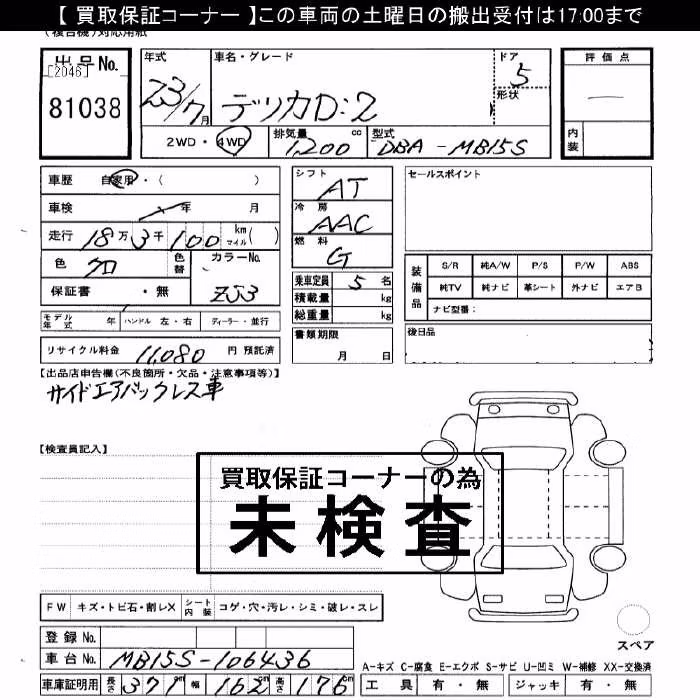 【 買取保証コーナー 】この車両の土曜日の搬出受付は17:00まで
(複合機)対応用紙
出品No.
[2046]
81038
年式
Z3/7月
車名・グレード
デリカD:2
ドア
5
形状
2WD・4WD
排気量
1,200 cc
型式
DBA-MB15S
評価点
—
内装
車歴 自家用・( )
車検 年 月
走行 18万3千100 km マイル( )
色 クロ
色替
カラーNo.
ZJ3
保証書 ・無
モデル年式 年
ハンドル 左・右
ディーラー・並行
リサイクル料金 11,080 円 預託済
シフト
AT
冷房
AAC
燃料
G
乗車定員 5 名
積載量 kg
総重量 kg
書類期限
月 日
セールスポイント
装備品
S/R 純A/W P/S P/W ABS
純TV 純ナビ 革シート 外ナビ エアB
ナビ型番:
後日品
【出品店申告欄(不良箇所・欠品・注意事項等)】
サイドエアバックレス車
【検査員記入】
買取保証コーナーの為
未検査
FW キズ・トビ石・割レX
シート内装 コゲ・穴・汚レ・シミ・破レ・スレ
登録No.
車台No. MB15S-106436
車庫証明用 長さ 371cm 幅 162cm 高さ 176cm
スペア
A-キズ C-腐食 E-エクボ S-サビ U-凹ミ W-補修 XX-交換済
工具 有・無 ジャッキ 有・無